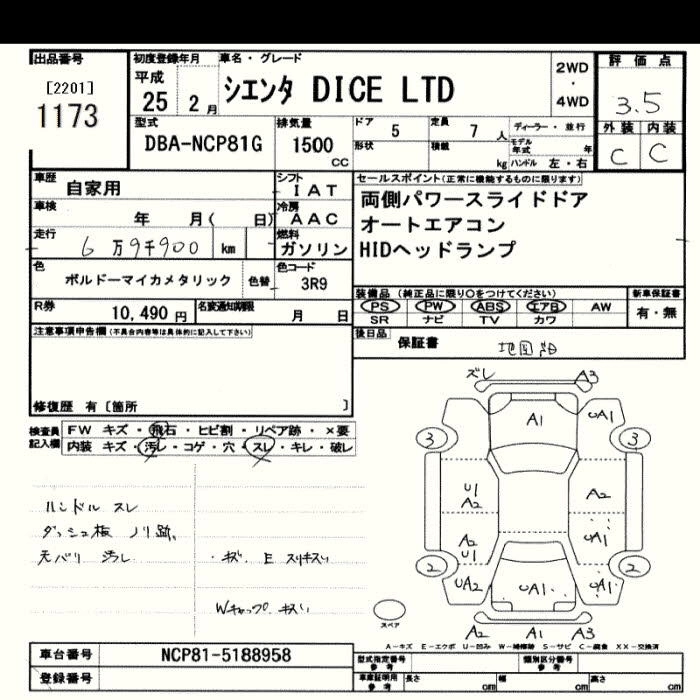 出品番号
[2201]
1173
初度登録年月
平成
25 2月
車名・グレード
シエンタ DICE LTD
2WD
・
4WD
評価点
3.5
外装 内装
C C
型式
DBA-NCP81G
排気量
1500
CC
ドア 5
定員 7 人
形状
積載 kg
ディーラー・並行
モデル年式 年
ハンドル 左・右
車歴 自家用
シフト IAT
車検 年 月( 日)
冷房 AAC
走行 6万9千900 km
燃料 ガソリン
色 ボルドーマイカメタリック 色替
色コード 3R9
R券 10,490円
名変通知期限 月 日
セールスポイント(正常に機能するものに限ります)
両側パワースライドドア
オートエアコン
HIDヘッドランプ
装備品(純正品に限り○をつけてください)
PS PW ABS エアB AW
SR ナビ TV カワ
新車保証書
有・無
後日品 保証書 地図
注意事項申告欄(不具合内容等は具体的に記入して下さい)
修復歴 有〔箇所 〕
検査員記入欄
FW キズ・飛石・ヒビ割・リペア跡・×要
内装 キズ・汚レ・コゲ・穴・スレ・キレ・破レ
ハンドル スレ
ダッシュ板 ノリ跡、
天バリ 汚レ
・キズ、E スリキズ小
Wキャップ キズ小
ズレ A3
A1 UA1
3 3
U1
A2 A2
A2
U1 UA1
2 2
UA2 UA1 UA1
スペア
A2 A1 A3
A-キズ E-エクボ U-凹み W-補修跡 S-サビ C-腐食 XX-交換済
車台番号 NCP81-5188958
登録番号
型式指定番号 参考
類別区分番号 参考
車庫証明用 参考
長さ cm
幅 cm
高さ cm